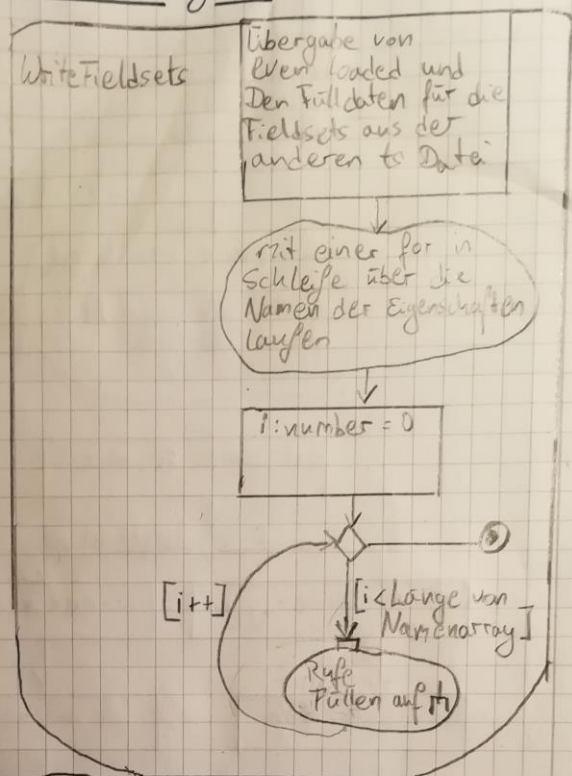 WriteFieldsets
Übergabe von
even loaded und
Den Fülldaten für die
Fieldsets aus der
anderen ts Datei
Mit einer for in
Schleife über die
Namen der Eigenschaften
laufen
i:number = 0
[i++]
[i<Länge von
Namenarray]
Rufe
Füllen auf